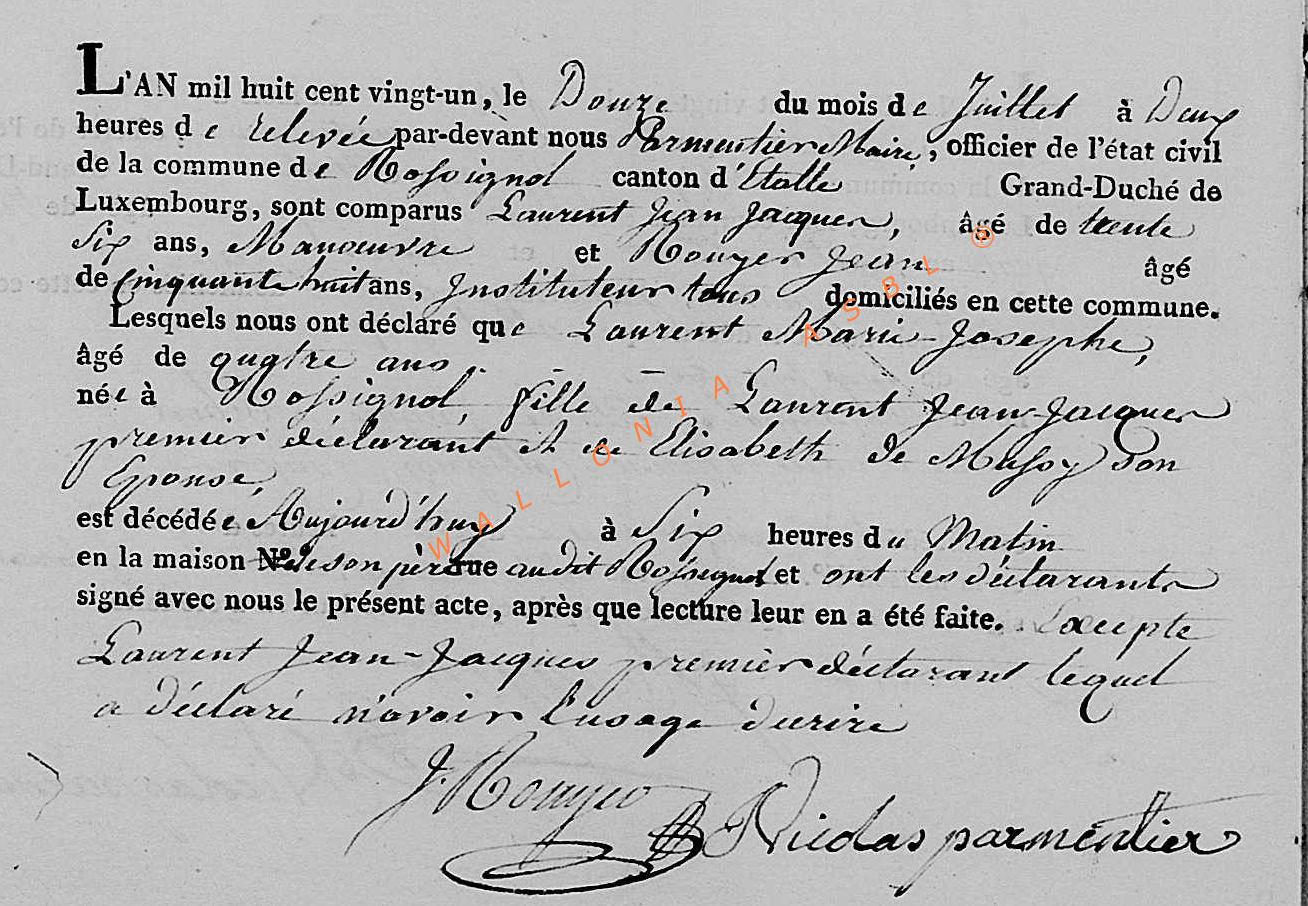 L'AN mil huit cent vingt-un, le Douze du mois de Juillet à Deux
heures de relevée par-devant nous Parmentier Maire, officier de l'état civil
de la commune de Rossignol canton d'Etalle Grand-Duché de
Luxembourg, sont comparus Laurent Jean Jacques, âgé de trente
Six ans, Manœuvre et Rouyer Jean âgé
de cinquante huit ans, Instituteur tous domiciliés en cette commune.
Lesquels nous ont déclaré que Laurent Marie-Josephe,
âgé de quatre ans
née à Rossignol, fille de Laurent Jean-Jacques
premier déclarant et de Elisabeth de Mussy son
Epouse,
est décédée Aujourd'huy à Six heures du Matin
en la maison No. de son père rue audit Rossignol et ont les déclarants
signé avec nous le présent acte, après que lecture leur en a été faite. Excepte
Laurent Jean-Jacques premier déclarant lequel
a déclaré n'avoir l'usage d'ecrire
J. Rouyer
Nicolas parmentier
WALLONIA ASBL ®